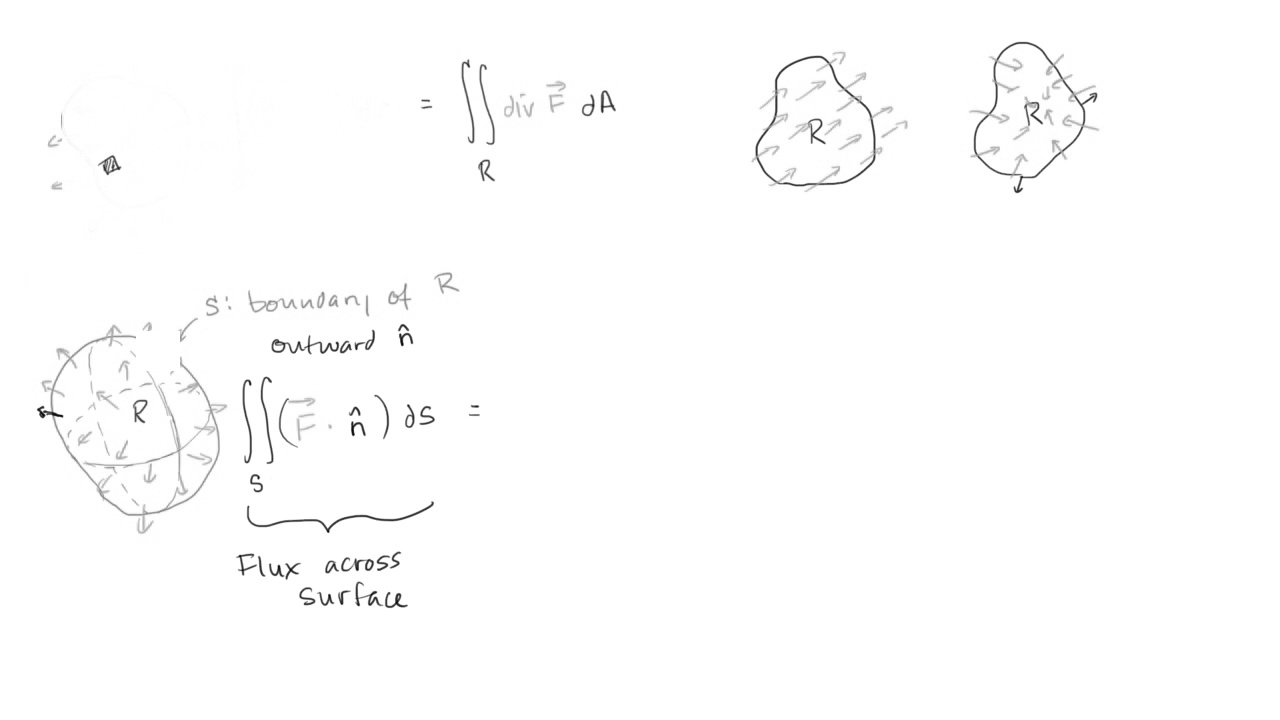 = ∬ div F⃗ dA
R
R
R
S: boundary of R
outward n̂
R
∬ (F⃗ · n̂) dS =
S
Flux across
surface